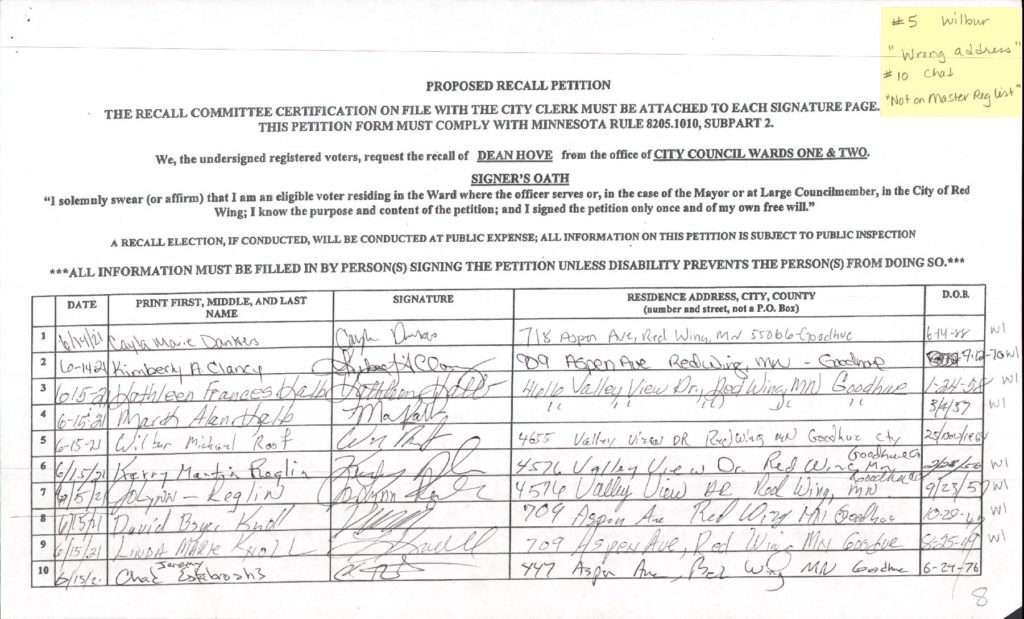 #5 Wilbur
"Wrong address"
#10 Chad
"Not on Master Reg List"
PROPOSED RECALL PETITION
THE RECALL COMMITTEE CERTIFICATION ON FILE WITH THE CITY CLERK MUST BE ATTACHED TO EACH SIGNATURE PAGE.
THIS PETITION FORM MUST COMPLY WITH MINNESOTA RULE 8205.1010, SUBPART 2.
We, the undersigned registered voters, request the recall of DEAN HOVE from the office of CITY COUNCIL WARDS ONE & TWO.
SIGNER'S OATH
"I solemnly swear (or affirm) that I am an eligible voter residing in the Ward where the officer serves or, in the case of the Mayor or at Large Councilmember, in the City of Red
Wing; I know the purpose and content of the petition; and I signed the petition only once and of my own free will."
A RECALL ELECTION, IF CONDUCTED, WILL BE CONDUCTED AT PUBLIC EXPENSE; ALL INFORMATION ON THIS PETITION IS SUBJECT TO PUBLIC INSPECTION
***ALL INFORMATION MUST BE FILLED IN BY PERSON(S) SIGNING THE PETITION UNLESS DISABILITY PREVENTS THE PERSON(S) FROM DOING SO.***
DATE PRINT FIRST, MIDDLE, AND LAST NAME SIGNATURE RESIDENCE ADDRESS, CITY, COUNTY (number and street, not a P.O. Box) D.O.B.
1 6/14/21 Cayla Marie Dankers 718 Aspen Ave, Red Wing, MN 55066-Goodhue 6-14-88 W1
2 6-14-21 Kimberly A. Clancy 809 Aspen Ave Red Wing, MN - Goodhue 9-12-70 W1
3 6-15-21 Kathleen Frances Halb 4616 Valley View Dr, Red Wing MN Goodhue 1-24-58 W1
4 6-15-21 Alan Halb " " " " " 3/4/57 W1
5 6-15-21 Wilbur Michael Roof 4655 Valley View DR Red Wing MN Goodhue cty
6 6/15/21 Kerry Martin Reglin 4576 Valley View Dr. Red Wing, MN Goodhue Co W1
7 6/15/21 JoLynn - Reglin 4576 Valley View DR Red Wing, MN Goodhue 9/23/57 W1
8 6/15/21 David Bruce Knoll 709 Aspen Ave Red Wing MN Goodhue W1
9 6/15/21 LINDA MARIE KNOLL 709 Aspen Ave, Red Wing MN W1
10 6/15/21 Chad Jeremy 447 Aspen Ave, Red Wing MN Goodhue 6-24-76
8